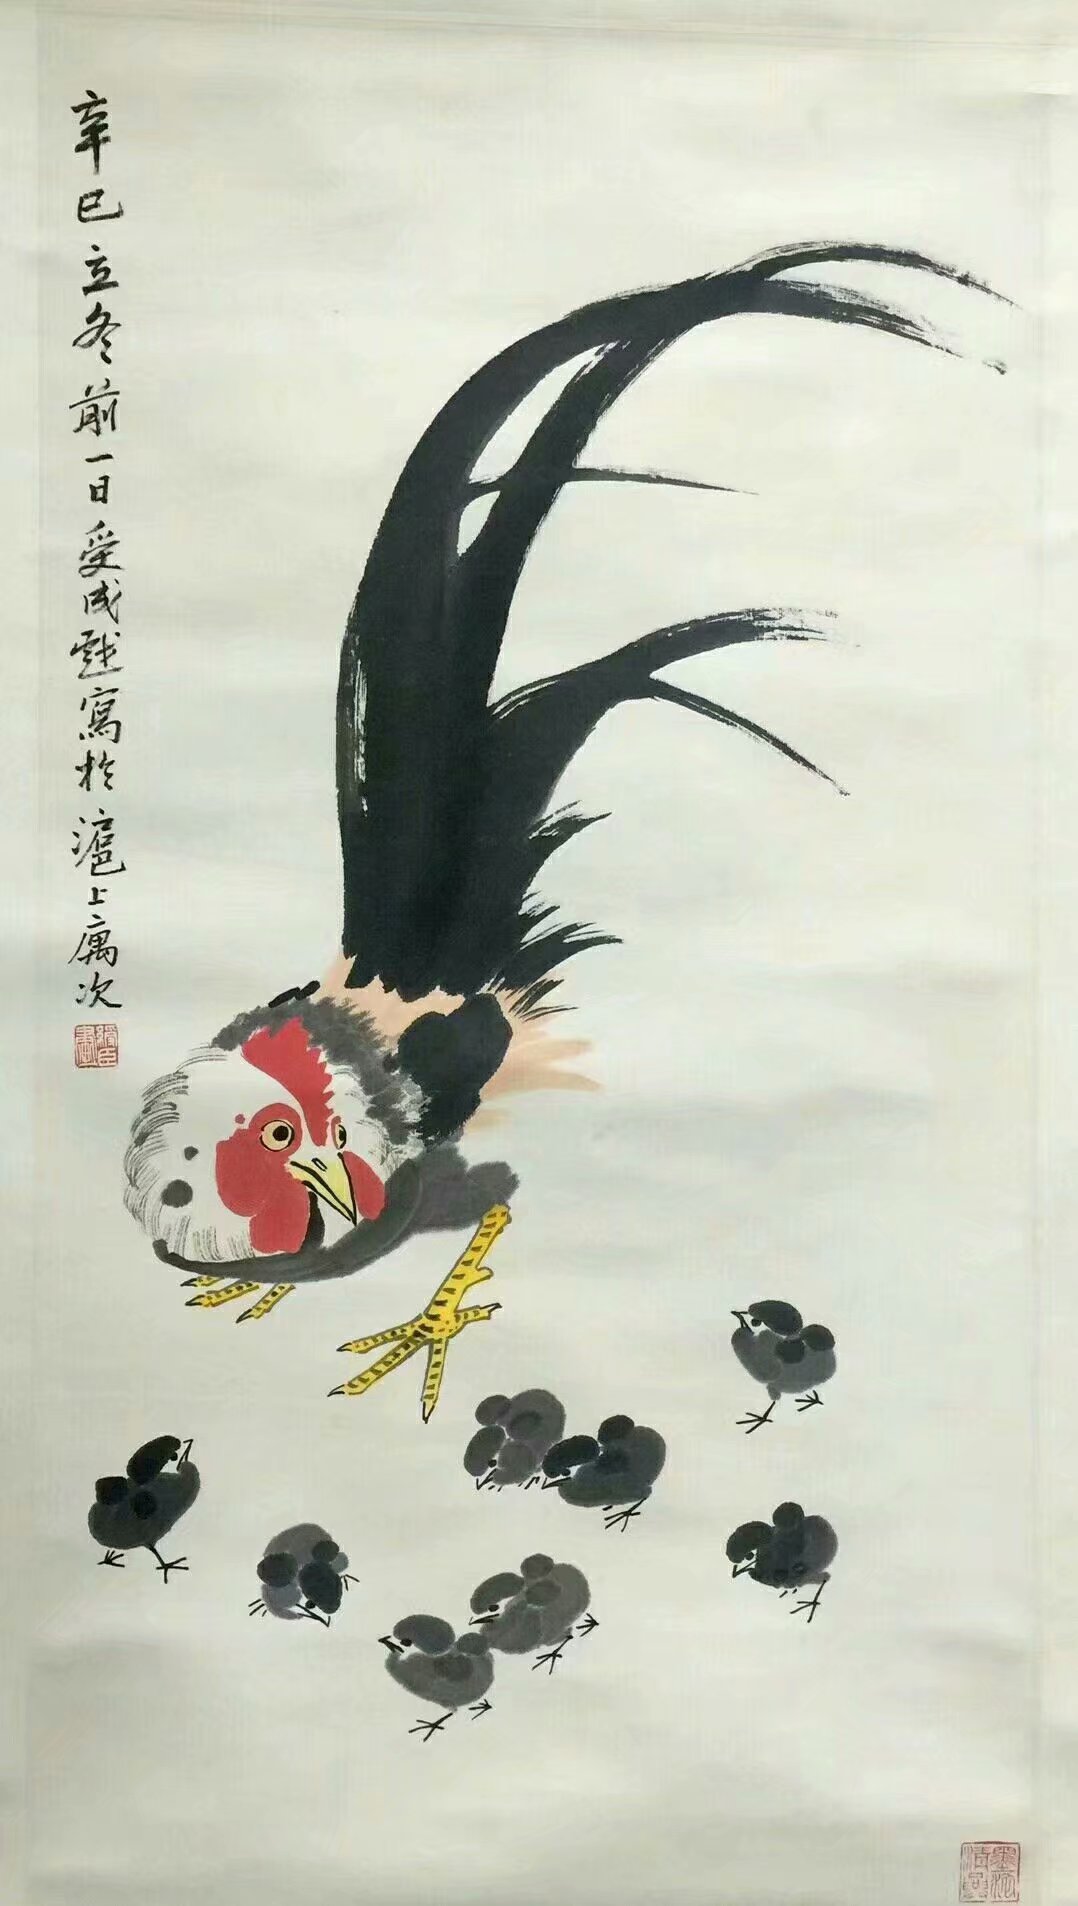 辛巳立冬前一日受成戲寫於滬上寓次